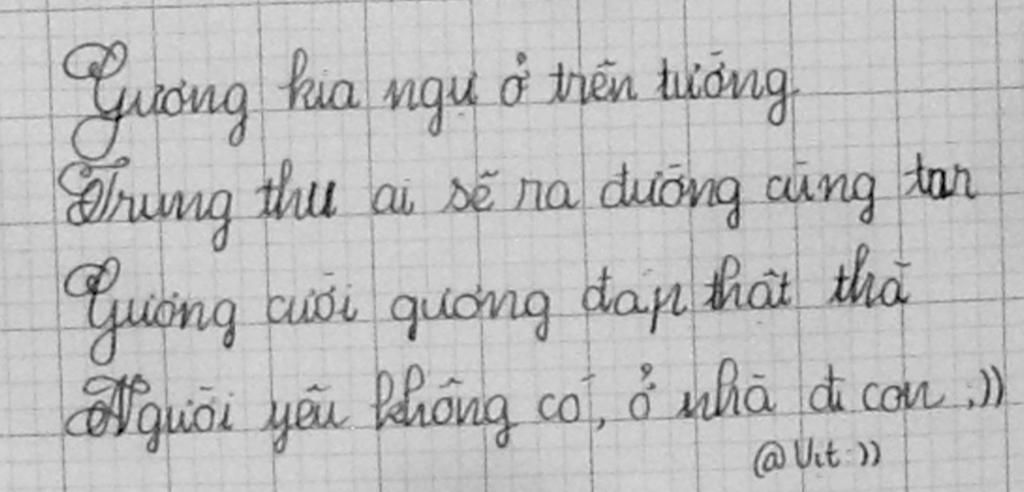 Gương kia ngự ở trên tường
Trung thu ai sẽ ra đường cùng tan
Gương cười gương đáp thật thà
Người yêu không có, ở nhà đi con :))
@Vịt :))